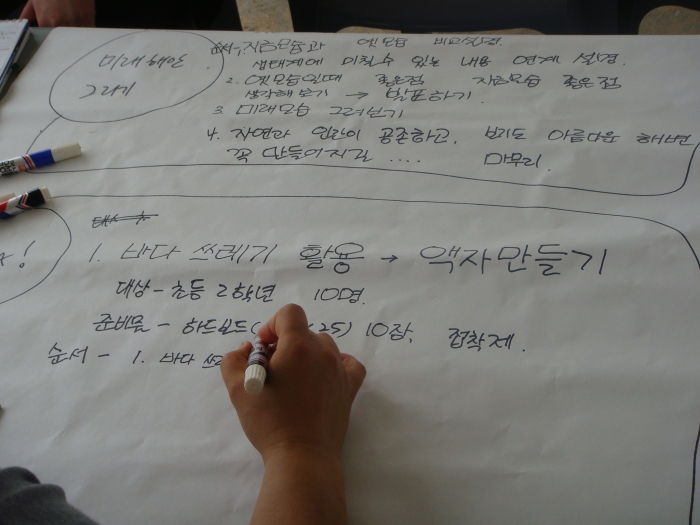 미래해안
그리기
순서, 지금모습과 옛모습 비교설명.
생태계에 미칠수 있는 내용 연계 설명.
2. 옛모습일때 좋은점 지금모습 좋은점
생각해보기 → 발표하기.
3. 미래모습 그려보기
4. 자연과 인간이 공존하고, 보기도 아름다운 해변
꼭 만들어지길 .... 마무리.
1. 바다 쓰레기 활용 → 액자만들기
대상 - 초등 2학년 10명.
준비물 - 하드보드( 25) 10장, 접착제.
순서 - 1. 바다 쓰